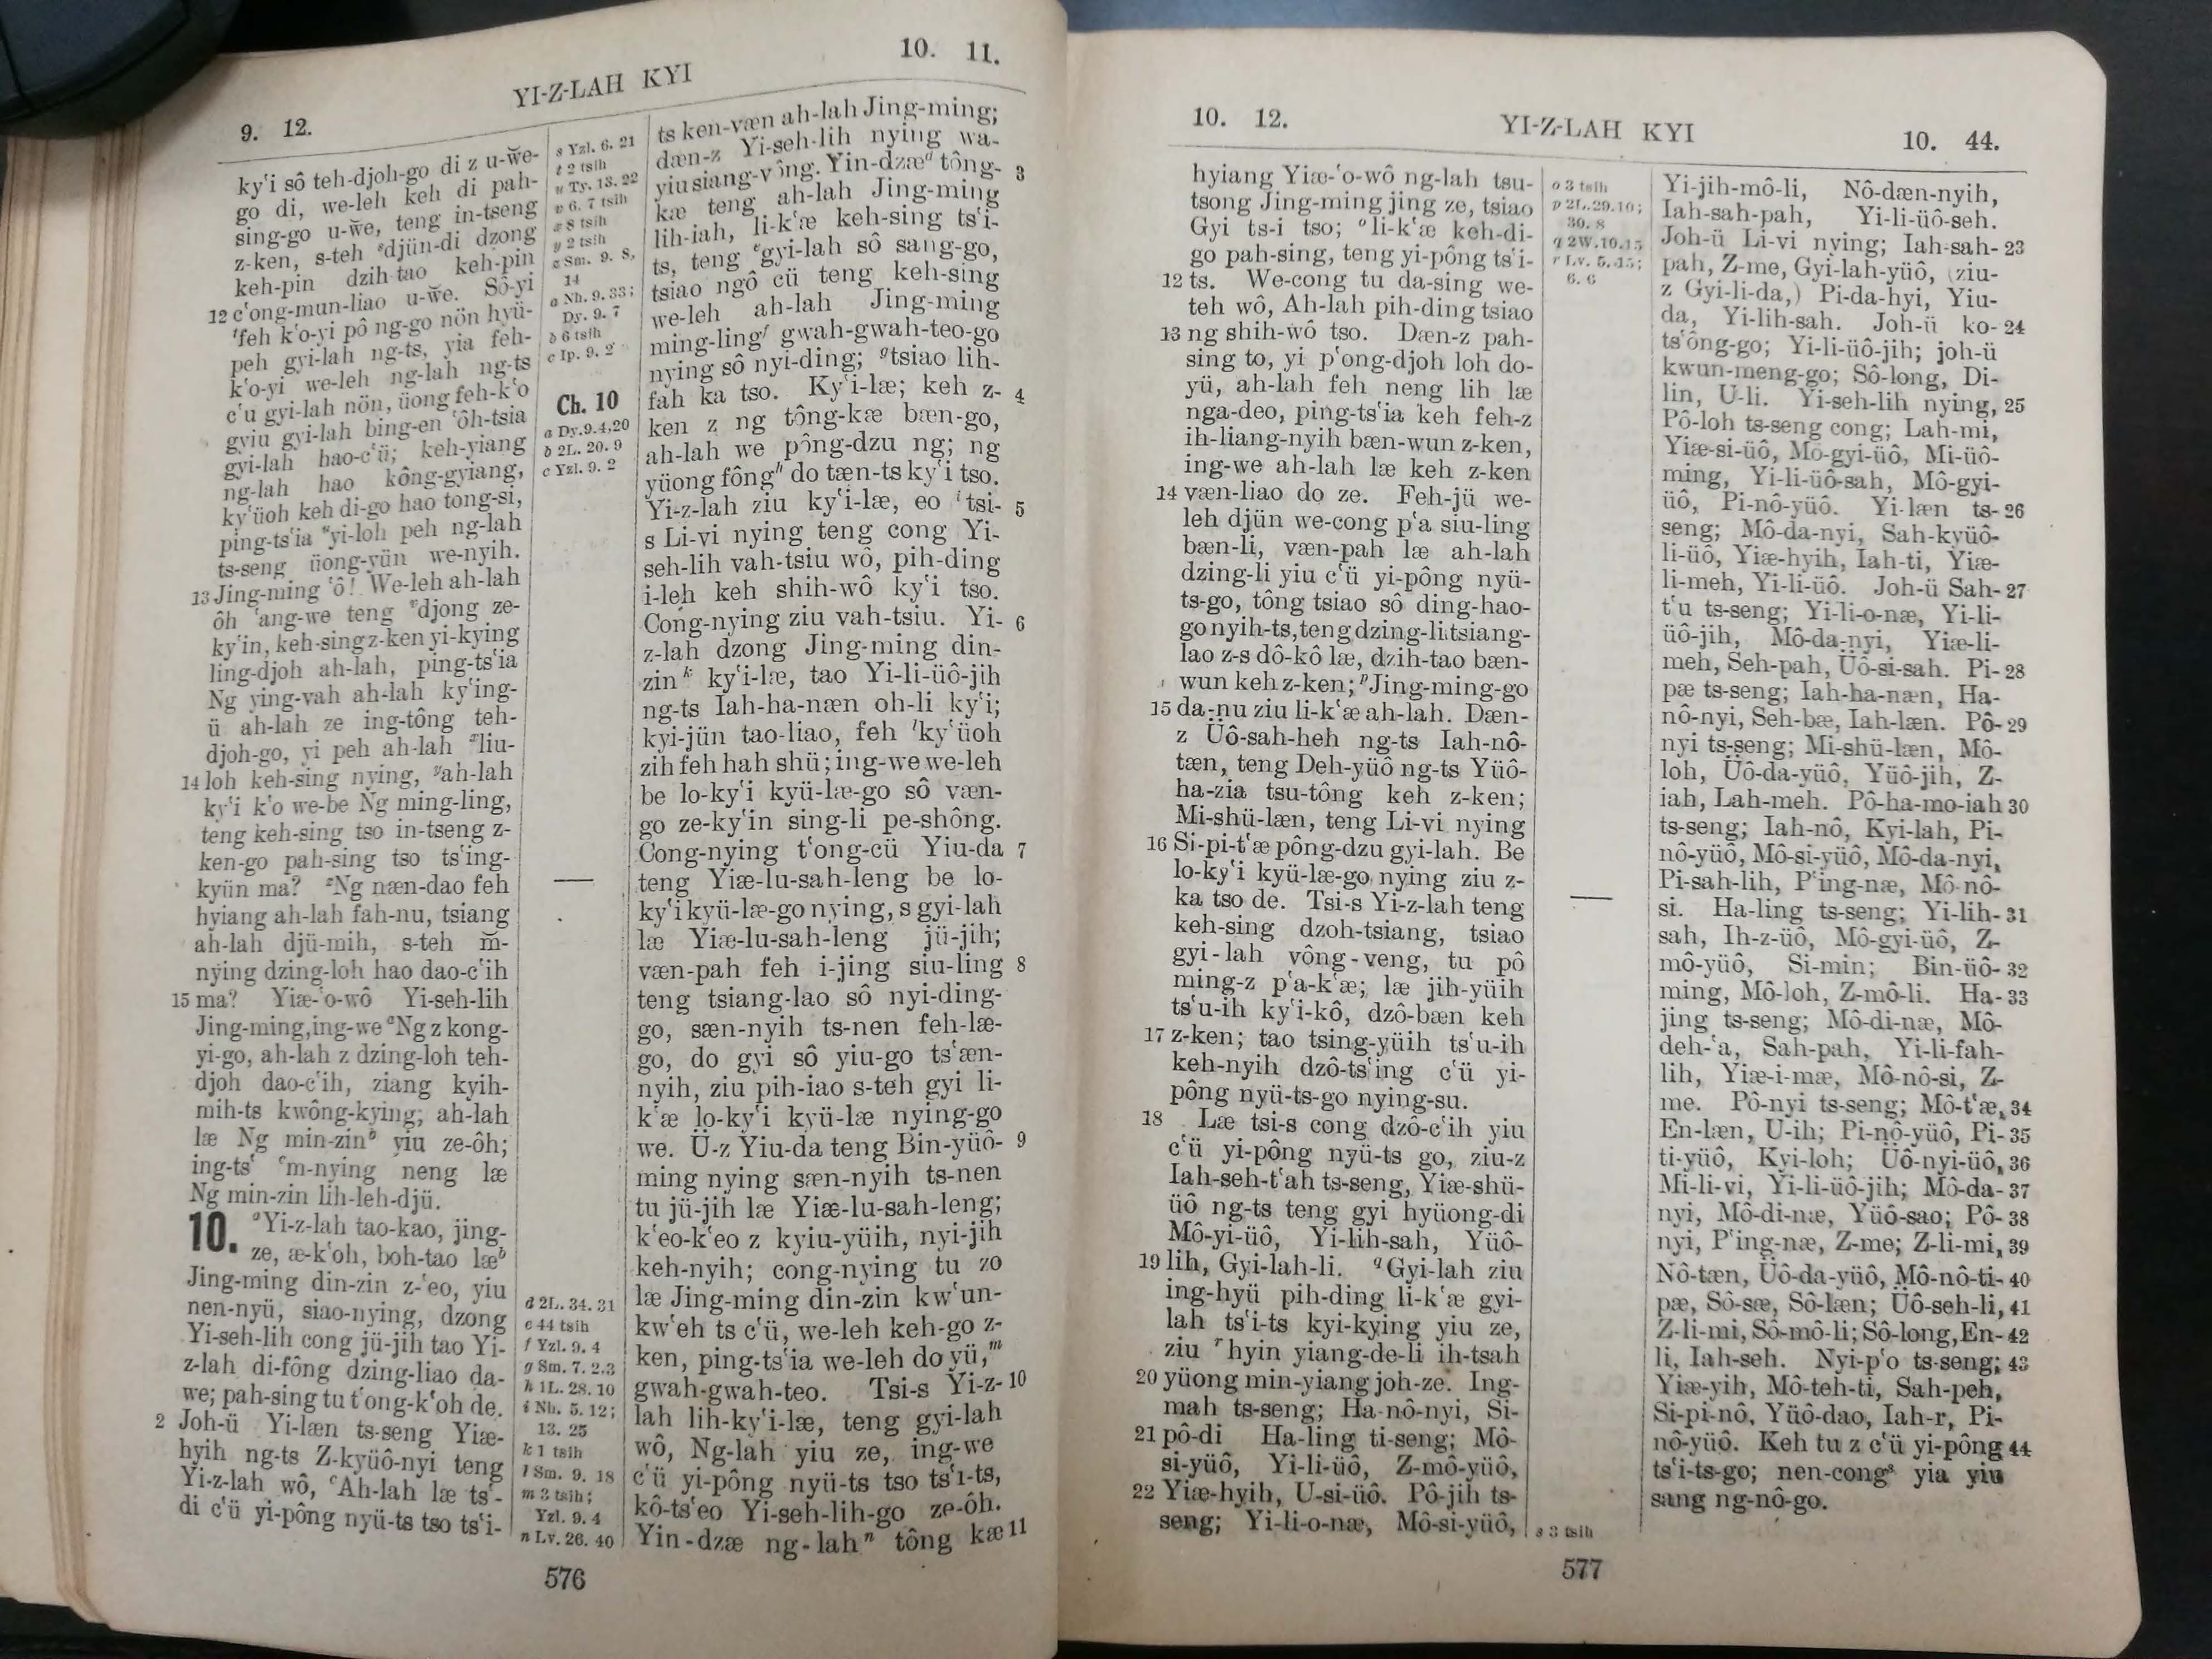 9. 12.
YI-Z-LAH KYI
10. 11.
ky‘i sô teh-djoh-go di z u-wĕ-
go di, we-leh keh di pah-
sing-go u-wĕ, teng in-tseng
z-ken, s-teh ˢdjün-di dzong
keh-pin dzih-tao keh-pin
12 c‘ong-mun-liao u-wĕ. Sô-yi
ᵗfeh k‘o-yi pô ng-go nön hyü-
peh gyi-lah ng-ts, yia feh-
k‘o-yi we-leh ng-lah ng-ts
c‘u gyi-lah nön, üong feh-k‘o
gyiu gyi-lah bing-en ‘ôh-tsia
gyi-lah hao-c‘ü; keh-yiang
ng-lah hao kông-gyiang,
ky‘üoh keh di-go hao tong-si,
ping-ts‘ia ᵘyi-loh peh ng-lah
ts-seng üong-yün we-nyih.
13 Jing-ming ‘ô! We-leh ah-lah
ôh ‘ang-we teng ᵛdjong ze-
ky‘in, keh-sing z-ken yi-kying
ling-djoh ah-lah, ping-ts‘ia
Ng ying-vah ah-lah ky‘ing-
ü ah-lah ze ing-tông teh-
djoh-go, yi peh ah-lah ˣliu-
14 loh keh-sing nying, ʸah-lah
ky‘i k‘o we-be Ng ming-ling,
teng keh-sing tso in-tseng z-
ken-go pah-sing tso ts‘ing-
kyün ma? ᶻNg næn-dao feh
hyiang ah-lah fah-nu, tsiang
ah-lah djü-mih, s-teh m̆-
nying dzing-loh hao dao-c‘ih
15 ma? Yiæ-‘o-wô Yi-seh-lih
Jing-ming, ing-we ᵃNg z kong-
yi-go, ah-lah z dzing-loh teh-
djoh dao-c‘ih, ziang kyih-
mih-ts kwông-kying; ah-lah
læ Ng min-zinᵇ yiu ze-ôh;
ing-ts‘ ᶜm-nying neng læ
Ng min-zin lih-leh-djü.
10. ᵃYi-z-lah tao-kao, jing-
ze, æ-k‘oh, boh-tao læᵇ
Jing-ming din-zin z-‘eo, yiu
nen-nyü, siao-nying, dzong
Yi-seh-lih cong jü-jih tao Yi-
z-lah di-fông dzing-liao da-
we; pah-sing tu t‘ong-k‘oh de.
2 Joh-ü Yi-læn ts-seng Yiæ-
hyih ng-ts Z-kyüô-nyi teng
Yi-z-lah wô, ᶜAh-lah læ ts‘-
di c‘ü yi-pông nyü-ts tso ts‘i-
s Yzl. 6. 21
t 2 tsih
u Ty. 13. 22
v 6. 7 tsih
x 8 tsih
y 2 tsih
z Sm. 9. 8,
14
a Nh. 9. 33;
Dy. 9. 7
b 6 tsih
c Ip. 9. 2
Ch. 10
a Dy. 9. 4, 20
b 2L. 20. 9
c Yzl. 9. 2
d 2L. 34. 31
e 44 tsih
f Yzl. 9. 4
g Sm. 7. 2. 3
h 1L. 28. 10
i Nh. 5. 12;
13. 25
k 1 tsih
l Sm. 9. 18
m 3 tsih;
Yzl. 9. 4
n Lv. 26. 40
ts ken-væn ah-lah Jing-ming;
dæn-z Yi-seh-lih nying wa-
yiu siang-vông. Yin-dzæᵈ tông- 3
kæ teng ah-lah Jing-ming
lih-iah, li-k‘æ keh-sing ts‘i-
ts, teng ᵉgyi-lah sô sang-go,
tsiao ngô cü teng keh-sing
we-leh ah-lah Jing-ming
ming-lingᶠ gwah-gwah-teo-go
nying sô nyi-ding; ᵍtsiao lih-
fah ka tso. Ky‘i-læ; keh z- 4
ken z ng tông-kæ bæn-go,
ah-lah we pông-dzu ng; ng
yüong fôngʰ do tæn-ts ky‘i tso.
Yi-z-lah ziu ky‘i-læ, eo ⁱtsi- 5
s Li-vi nying teng cong Yi-
seh-lih vah-tsiu wô, pih-ding
i-leh keh shih-wô ky‘i tso.
Cong-nying ziu vah-tsiu. Yi- 6
z-lah dzong Jing-ming din-
zinᵏ ky‘i-læ, tao Yi-li-üô-jih
ng-ts Iah-ha-næn oh-li ky‘i;
kyi-jün tao-liao, feh ˡky‘üoh
zih feh hah shü; ing-we we-leh
be lo-ky‘i kyü-læ-go sô væn-
go ze-ky‘in sing-li pe-shông.
Cong-nying t‘ong-cü Yiu-da 7
teng Yiæ-lu-sah-leng be lo-
ky‘i kyü-læ-go nying, s gyi-lah
læ Yiæ-lu-sah-leng jü-jih;
væn-pah feh i-jing siu-ling 8
teng tsiang-lao sô nyi-ding-
go, sæn-nyih ts-nen feh-læ-
go, do gyi sô yiu-go ts‘æn-
nyih, ziu pih-iao s-teh gyi li-
k‘æ lo-ky‘i kyü-læ nying-go
we. Ü-z Yiu-da teng Bin-yüô- 9
ming nying sæn-nyih ts-nen
tu jü-jih læ Yiæ-lu-sah-leng;
k‘eo-k‘eo z kyiu-yüih, nyi-jih
keh-nyih; cong-nying tu zo
læ Jing-ming din-zin kw‘un-
kw‘eh ts c‘ü, we-leh keh-go z-
ken, ping-ts‘ia we-leh do yü,ᵐ
gwah-gwah-teo. Tsi-s Yi-z- 10
lah lih-ky‘i-læ, teng gyi-lah
wô, Ng-lah yiu ze, ing-we
c‘ü yi-pông nyü-ts tso ts‘i-ts,
kô-ts‘eo Yi-seh-lih-go ze-ôh.
Yin-dzæ ng-lahⁿ tông kæ 11
576
10. 12.
YI-Z-LAH KYI
10. 44.
hyiang Yiæ-‘o-wô ng-lah tsu-
tsong Jing-ming jing ze, tsiao
Gyi ts-i tso; ᵒli-k‘æ keh-di-
go pah-sing, teng yi-pông ts‘i-
12 ts. We-cong tu da-sing we-
teh wô, Ah-lah pih-ding tsiao
13 ng shih-wô tso. Dæn-z pah-
sing to, yi p‘ong-djoh loh do-
yü, ah-lah feh neng lih læ
nga-deo, ping-ts‘ia keh feh-z
ih-liang-nyih bæn-wun z-ken,
ing-we ah-lah læ keh z-ken
14 væn-liao do ze. Feh-jü we-
leh djün we-cong p‘a siu-ling
bæn-li, væn-pah læ ah-lah
dzing-li yiu c‘ü yi-pông nyü-
ts-go, tông tsiao sô ding-hao-
go nyih-ts, teng dzing-li tsiang-
lao z-s dô-kô læ, dzih-tao bæn-
wun keh z-ken; ᵖJing-ming-go
15 da-nu ziu li-k‘æ ah-lah. Dæn-
z Üô-sah-heh ng-ts Iah-nô-
tæn, teng Deh-yüô ng-ts Yüô-
ha-zia tsu-tông keh z-ken;
Mi-shü-læn, teng Li-vi nying
16 Si-pi-t‘æ pông-dzu gyi-lah. Be
lo-ky‘i kyü-læ-go nying ziu z-
ka tso de. Tsi-s Yi-z-lah teng
keh-sing dzoh-tsiang, tsiao
gyi-lah vông-veng, tu pô
ming-z p‘a-k‘æ; læ jih-yüih
ts‘u-ih ky‘i-kô, dzô-bæn keh
17 z-ken; tao tsing-yüih ts‘u-ih
keh-nyih dzô-ts‘ing c‘ü yi-
pông nyü-ts-go nying-su.
18 Læ tsi-s cong dzô-c‘ih yiu
c‘ü yi-pông nyü-ts go, ziu-z
Iah-seh-t‘ah ts-seng, Yiæ-shü-
üô ng-ts teng gyi hyüong-di
Mô-yi-üô, Yi-lih-sah, Yüô-
19 lih, Gyi-lah-li. ᑫGyi-lah ziu
ing-hyü pih-ding li-k‘æ gyi-
lah ts‘i-ts kyi-kying yiu ze,
ziu ʳhyin yiang-de-li ih-tsah
20 yüong min-yiang joh-ze. Ing-
mah ts-seng; Ha-nô-nyi, Si-
21 pô-di Ha-ling ti-seng; Mô-
si-yüô, Yi-li-üô, Z-mô-yüô,
22 Yiæ-hyih, U-si-üô. Pô-jih ts-
seng; Yi-li-o-næ, Mô-si-yüô,
o 3 tsih
p 2L. 29. 10;
30. 8
q 2W. 10. 15
r Lv. 5. 15;
6. 6
s 3 tsih
Yi-jih-mô-li, Nô-dæn-nyih,
Iah-sah-pah, Yi-li-üô-seh.
Joh-ü Li-vi nying; Iah-sah- 23
pah, Z-me, Gyi-lah-yüô, (ziu-
z Gyi-li-da,) Pi-da-hyi, Yiu-
da, Yi-lih-sah. Joh-ü ko- 24
ts‘ông-go; Yi-li-üô-jih; joh-ü
kwun-meng-go; Sô-long, Di-
lin, U-li. Yi-seh-lih nying, 25
Pô-loh ts-seng cong; Lah-mi,
Yiæ-si-üô, Mô-gyi-üô, Mi-üô-
ming, Yi-li-üô-sah, Mô-gyi-
üô, Pi-nô-yüô. Yi-læn ts- 26
seng; Mô-da-nyi, Sah-kyüô-
li-üô, Yiæ-hyih, Iah-ti, Yiæ-
li-meh, Yi-li-üô. Joh-ü Sah- 27
t‘u ts-seng; Yi-li-o-næ, Yi-li-
üô-jih, Mô-da-nyi, Yiæ-li-
meh, Seh-pah, Üô-si-sah. Pi- 28
pæ ts-seng; Iah-ha-næn, Ha-
nô-nyi, Seh-bæ, Iah-læn. Pô- 29
nyi ts-seng; Mi-shü-læn, Mô-
loh, Üô-da-yüô, Yüô-jih, Z-
iah, Lah-meh. Pô-ha-mo-iah 30
ts-seng; Iah-nô, Kyi-lah, Pi-
nô-yüô, Mô-si-yüô, Mô-da-nyi,
Pi-sah-lih, P‘ing-næ, Mô-nô-
si. Ha-ling ts-seng; Yi-lih- 31
sah, Ih-z-üô, Mô-gyi-üô, Z-
mô-yüô, Si-min; Bin-üô- 32
ming, Mô-loh, Z-mô-li. Ha- 33
jing ts-seng; Mô-di-næ, Mô-
deh-‘a, Sah-pah, Yi-li-fah-
lih, Yiæ-i-mæ, Mô-nô-si, Z-
me. Pô-nyi ts-seng; Mô-t‘æ, 34
En-læn, U-ih; Pi-nô-yüô, Pi- 35
ti-yüô, Kyi-loh; Üô-nyi-üô, 36
Mi-li-vi, Yi-li-üô-jih; Mô-da- 37
nyi, Mô-di-næ, Yüô-sao; Pô- 38
nyi, P‘ing-næ, Z-me; Z-li-mi, 39
Nô-tæn, Üô-da-yüô, Mô-nô-ti- 40
pæ, Sô-sæ, Sô-læn; Üô-seh-li, 41
Z-li-mi, Sô-mô-li; Sô-long, En- 42
li, Iah-seh. Nyi-p‘o ts-seng; 43
Yiæ-yih, Mô-teh-ti, Sah-peh,
Si-pi-nô, Yüô-dao, Iah-r, Pi-
nô-yüô. Keh tu z c‘ü yi-pông 44
ts‘i-ts-go; nen-congˢ yia yiu
sang ng-nô-go.
577